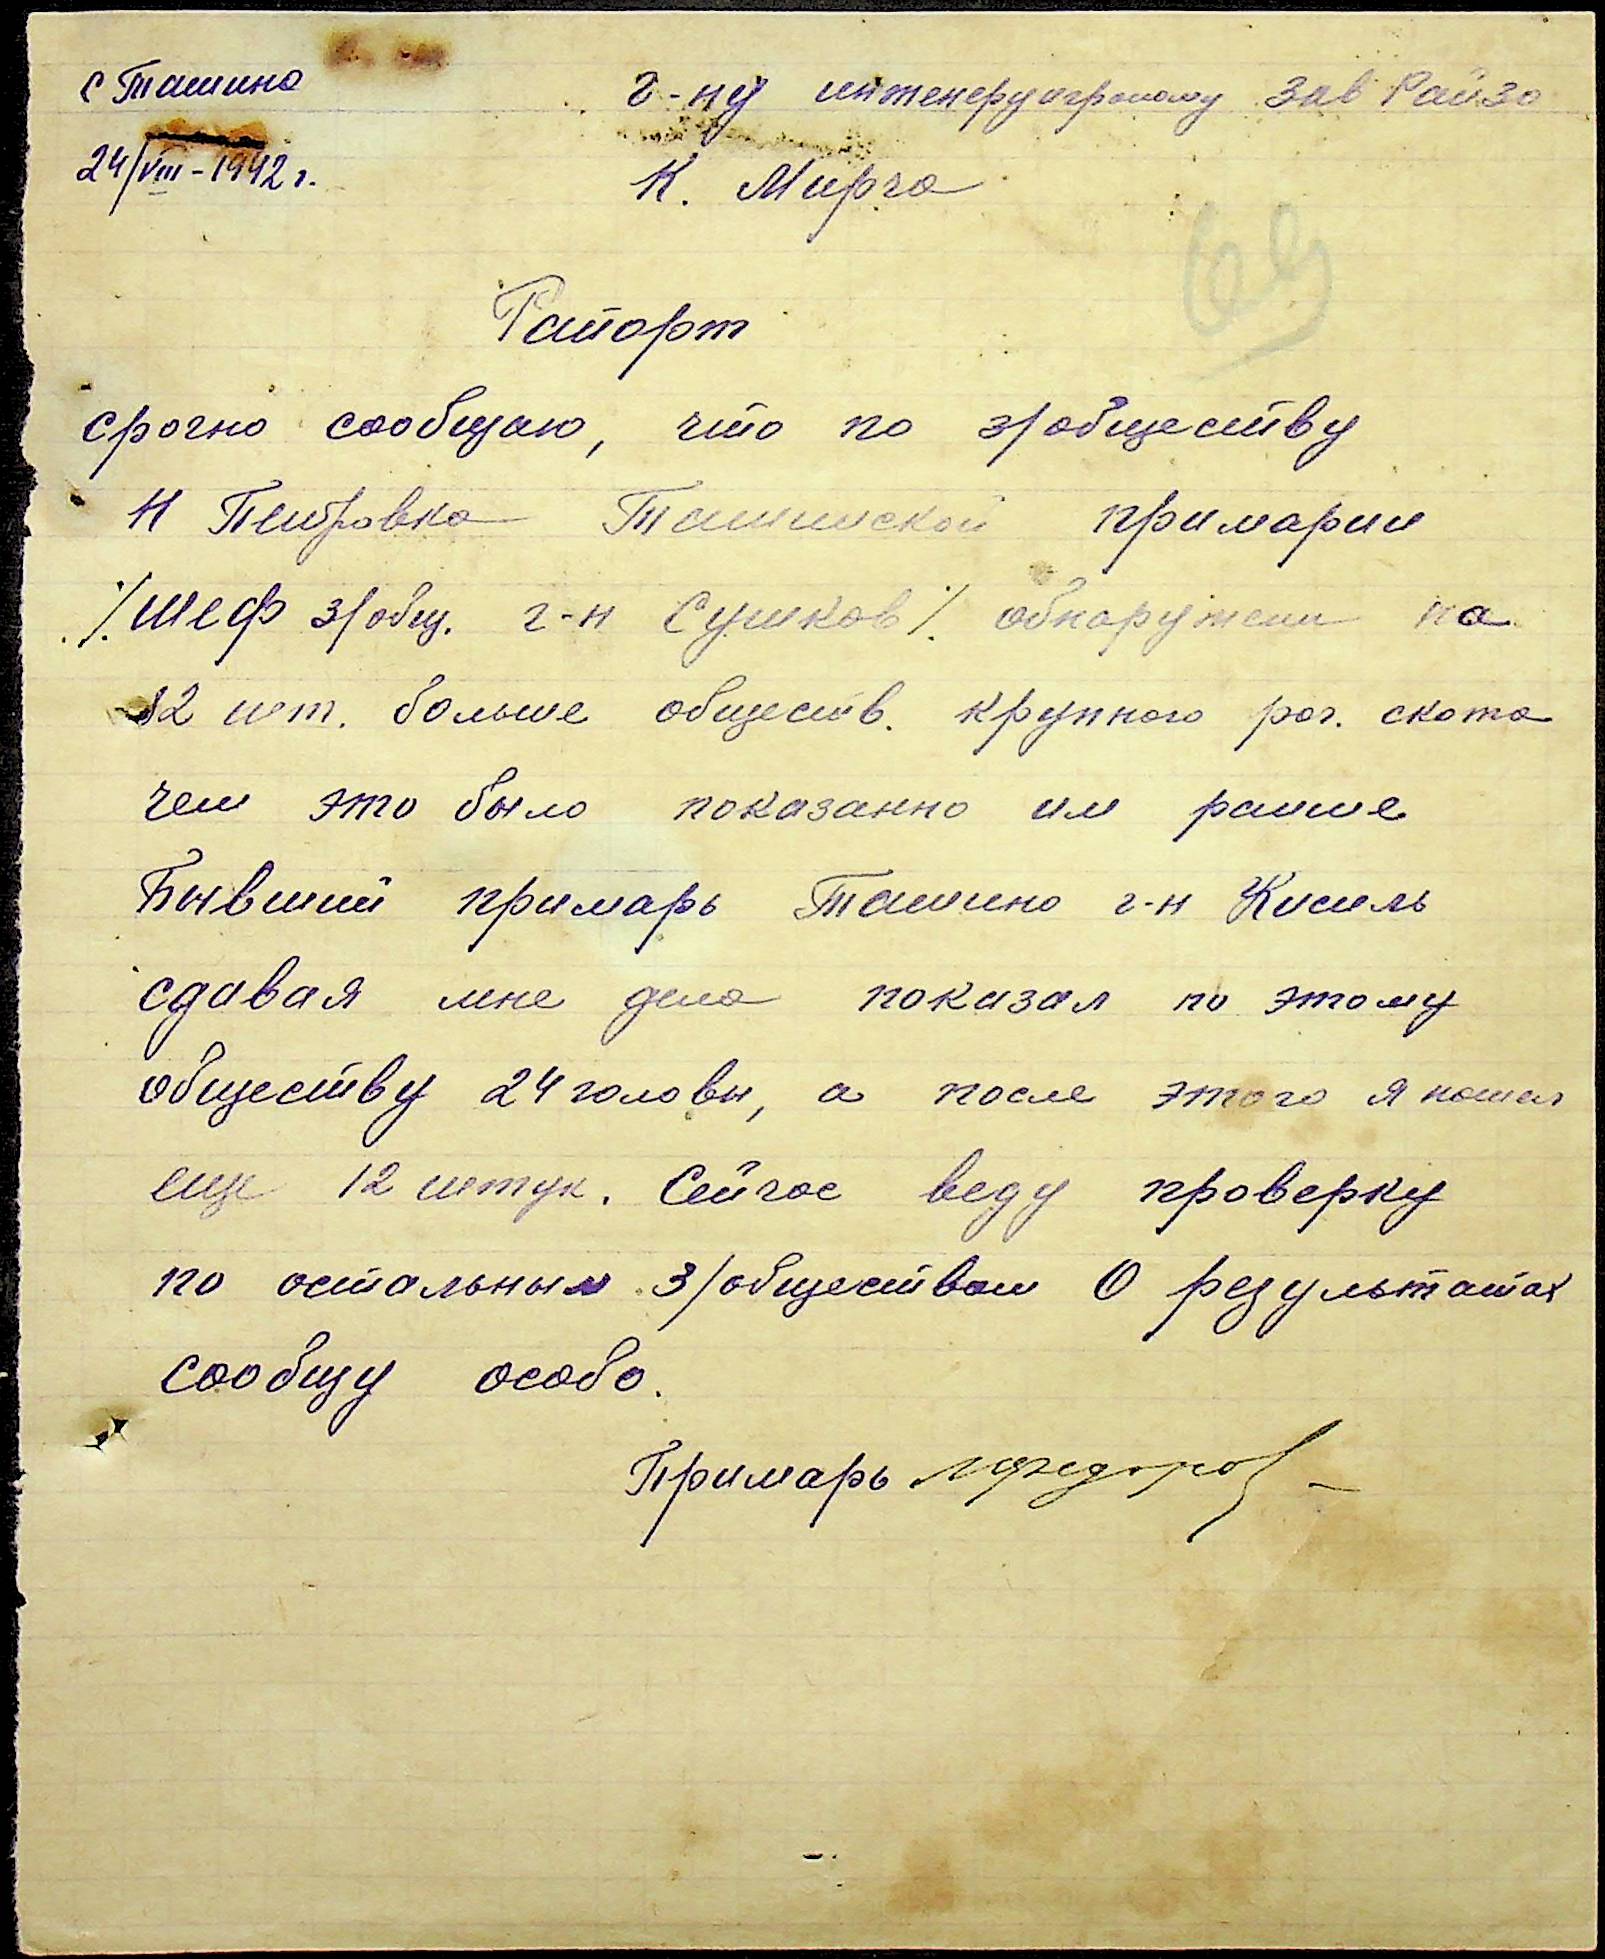 с Ташино
г-ну инженеру агроному Зав Райзо
24/VIII-1942 г.
К. Мирча
Рапорт
срочно сообщаю, что по з/обществу
Н Петровка Ташинской примарии
/.шеф з/общ. г-н Сушков/. обнаружени на
12 шт. больше обществ. крупного рог. скота
чем это было показанно им ранше
Бывший примарь Ташино г-н Кисиль
сдавая мне дела показал по этому
обществу 24 головы, а после этого я нашел
еще 12 штук. Сейчас веду проверку
по остальным з/обществам О результатах
сообщу особо.
Примарь